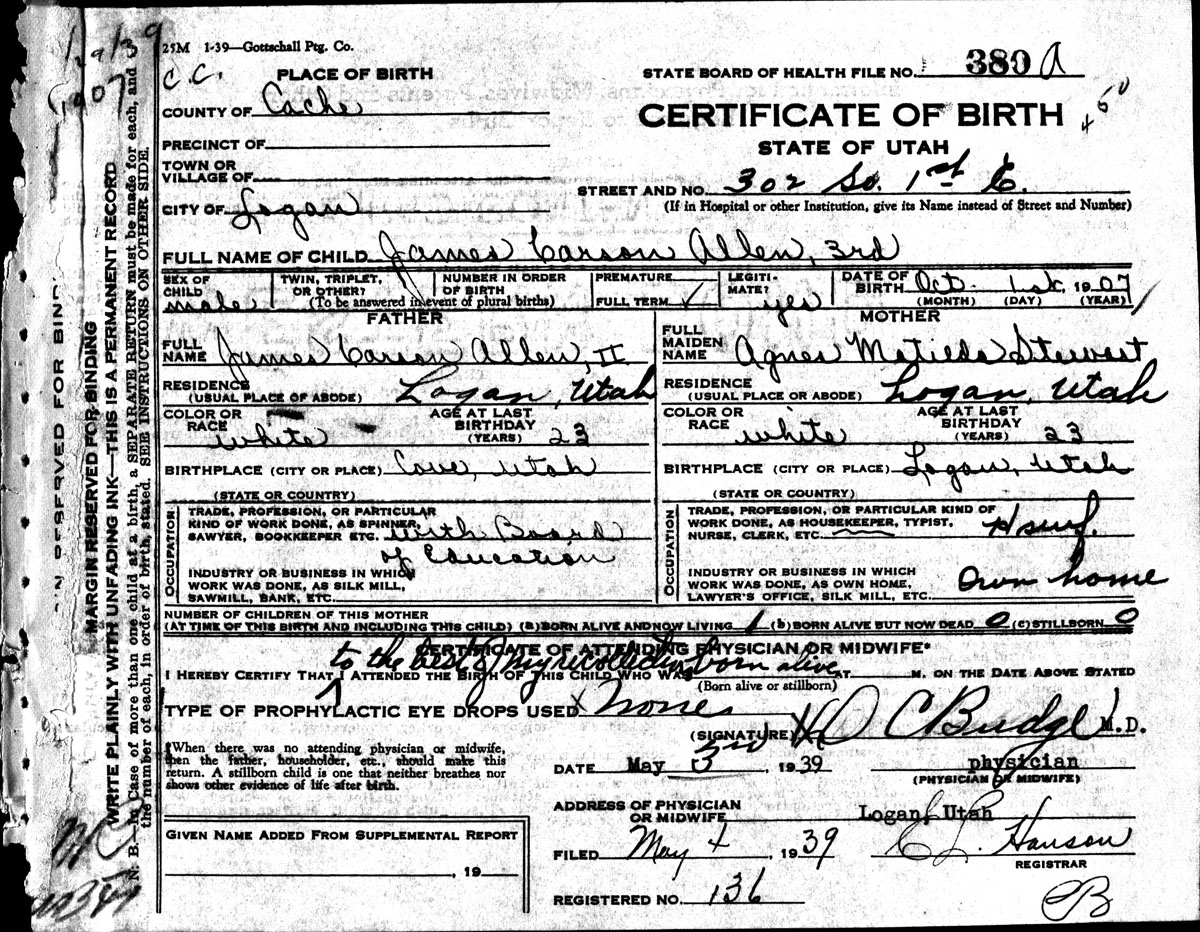 25M 1-39—Gottschall Ptg. Co.
1907
C.C.
PLACE OF BIRTH
STATE BOARD OF HEALTH FILE NO. 380 A
COUNTY OF Cache
CERTIFICATE OF BIRTH
PRECINCT OF
STATE OF UTAH
TOWN OR
VILLAGE OF
STREET AND NO. 302 So. 1st E.
CITY OF Logan
(If in Hospital or other Institution, give its Name instead of Street and Number)
FULL NAME OF CHILD James Carson Allen, 3rd
SEX OF CHILD male
TWIN, TRIPLET, OR OTHER?
NUMBER IN ORDER OF BIRTH
(To be answered in event of plural births)
PREMATURE
FULL TERM ✓
LEGITIMATE? yes
DATE OF BIRTH Oct. 1st, 1907
(MONTH) (DAY) (YEAR)
FATHER
FULL NAME James Carson Allen, II
RESIDENCE (USUAL PLACE OF ABODE) Logan, Utah
COLOR OR RACE white
AGE AT LAST BIRTHDAY (YEARS) 23
BIRTHPLACE (CITY OR PLACE) Cove, Utah
(STATE OR COUNTRY)
OCCUPATION
TRADE, PROFESSION, OR PARTICULAR
KIND OF WORK DONE, AS SPINNER,
SAWYER, BOOKKEEPER ETC. with Board
of Education
INDUSTRY OR BUSINESS IN WHICH
WORK WAS DONE, AS SILK MILL,
SAWMILL, BANK, ETC.
MOTHER
FULL MAIDEN NAME Agnes Matilda Stewart
RESIDENCE (USUAL PLACE OR ABODE) Logan, Utah
COLOR OR RACE white
AGE AT LAST BIRTHDAY (YEARS) 23
BIRTHPLACE (CITY OR PLACE) Logan, Utah
(STATE OR COUNTRY)
OCCUPATION
TRADE, PROFESSION, OR PARTICULAR KIND OF
WORK DONE, AS HOUSEKEEPER, TYPIST,
NURSE, CLERK, ETC. Hswf.
INDUSTRY OR BUSINESS IN WHICH
WORK WAS DONE, AS OWN HOME,
LAWYER'S OFFICE, SILK MILL, ETC. Own home
NUMBER OF CHILDREN OF THIS MOTHER
(AT TIME OF THIS BIRTH AND INCLUDING THIS CHILD) (a) BORN ALIVE AND NOW LIVING 1 (b) BORN ALIVE BUT NOW DEAD 0 (c) STILLBORN 0
CERTIFICATE OF ATTENDING PHYSICIAN OR MIDWIFE*
to the best of my recollection
I HEREBY CERTIFY THAT I ATTENDED THE BIRTH OF THIS CHILD WHO WAS born alive AT M. ON THE DATE ABOVE STATED
(Born alive or stillborn)
TYPE OF PROPHYLACTIC EYE DROPS USED x None
(SIGNATURE) x D C Budge M.D.
*When there was no attending physician or midwife,
then the father, householder, etc., should make this
return. A stillborn child is one that neither breathes nor
shows other evidence of life after birth.
DATE May 3rd, 1939
physician
(PHYSICIAN OR MIDWIFE)
ADDRESS OF PHYSICIAN
OR MIDWIFE Logan, Utah
GIVEN NAME ADDED FROM SUPPLEMENTAL REPORT
, 19
FILED May 4, 1939
C L. Hanson
REGISTRAR
REGISTERED NO. 136
CB
N RESERVED FOR BIND
MARGIN RESERVED FOR BINDING
WRITE PLAINLY WITH UNFADING INK—THIS IS A PERMANENT RECORD
N. B.—In Case of more than one child at a birth, a SEPARATE RETURN must be made for each, and
the number of each, in order of birth, stated. SEE INSTRUCTIONS ON OTHER SIDE.